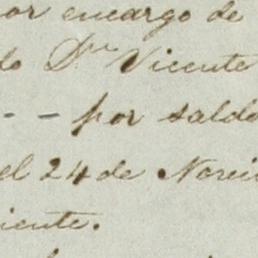 por encargo de
do Dn Vicente
- - por saldo
el 24 de Novei
iente.